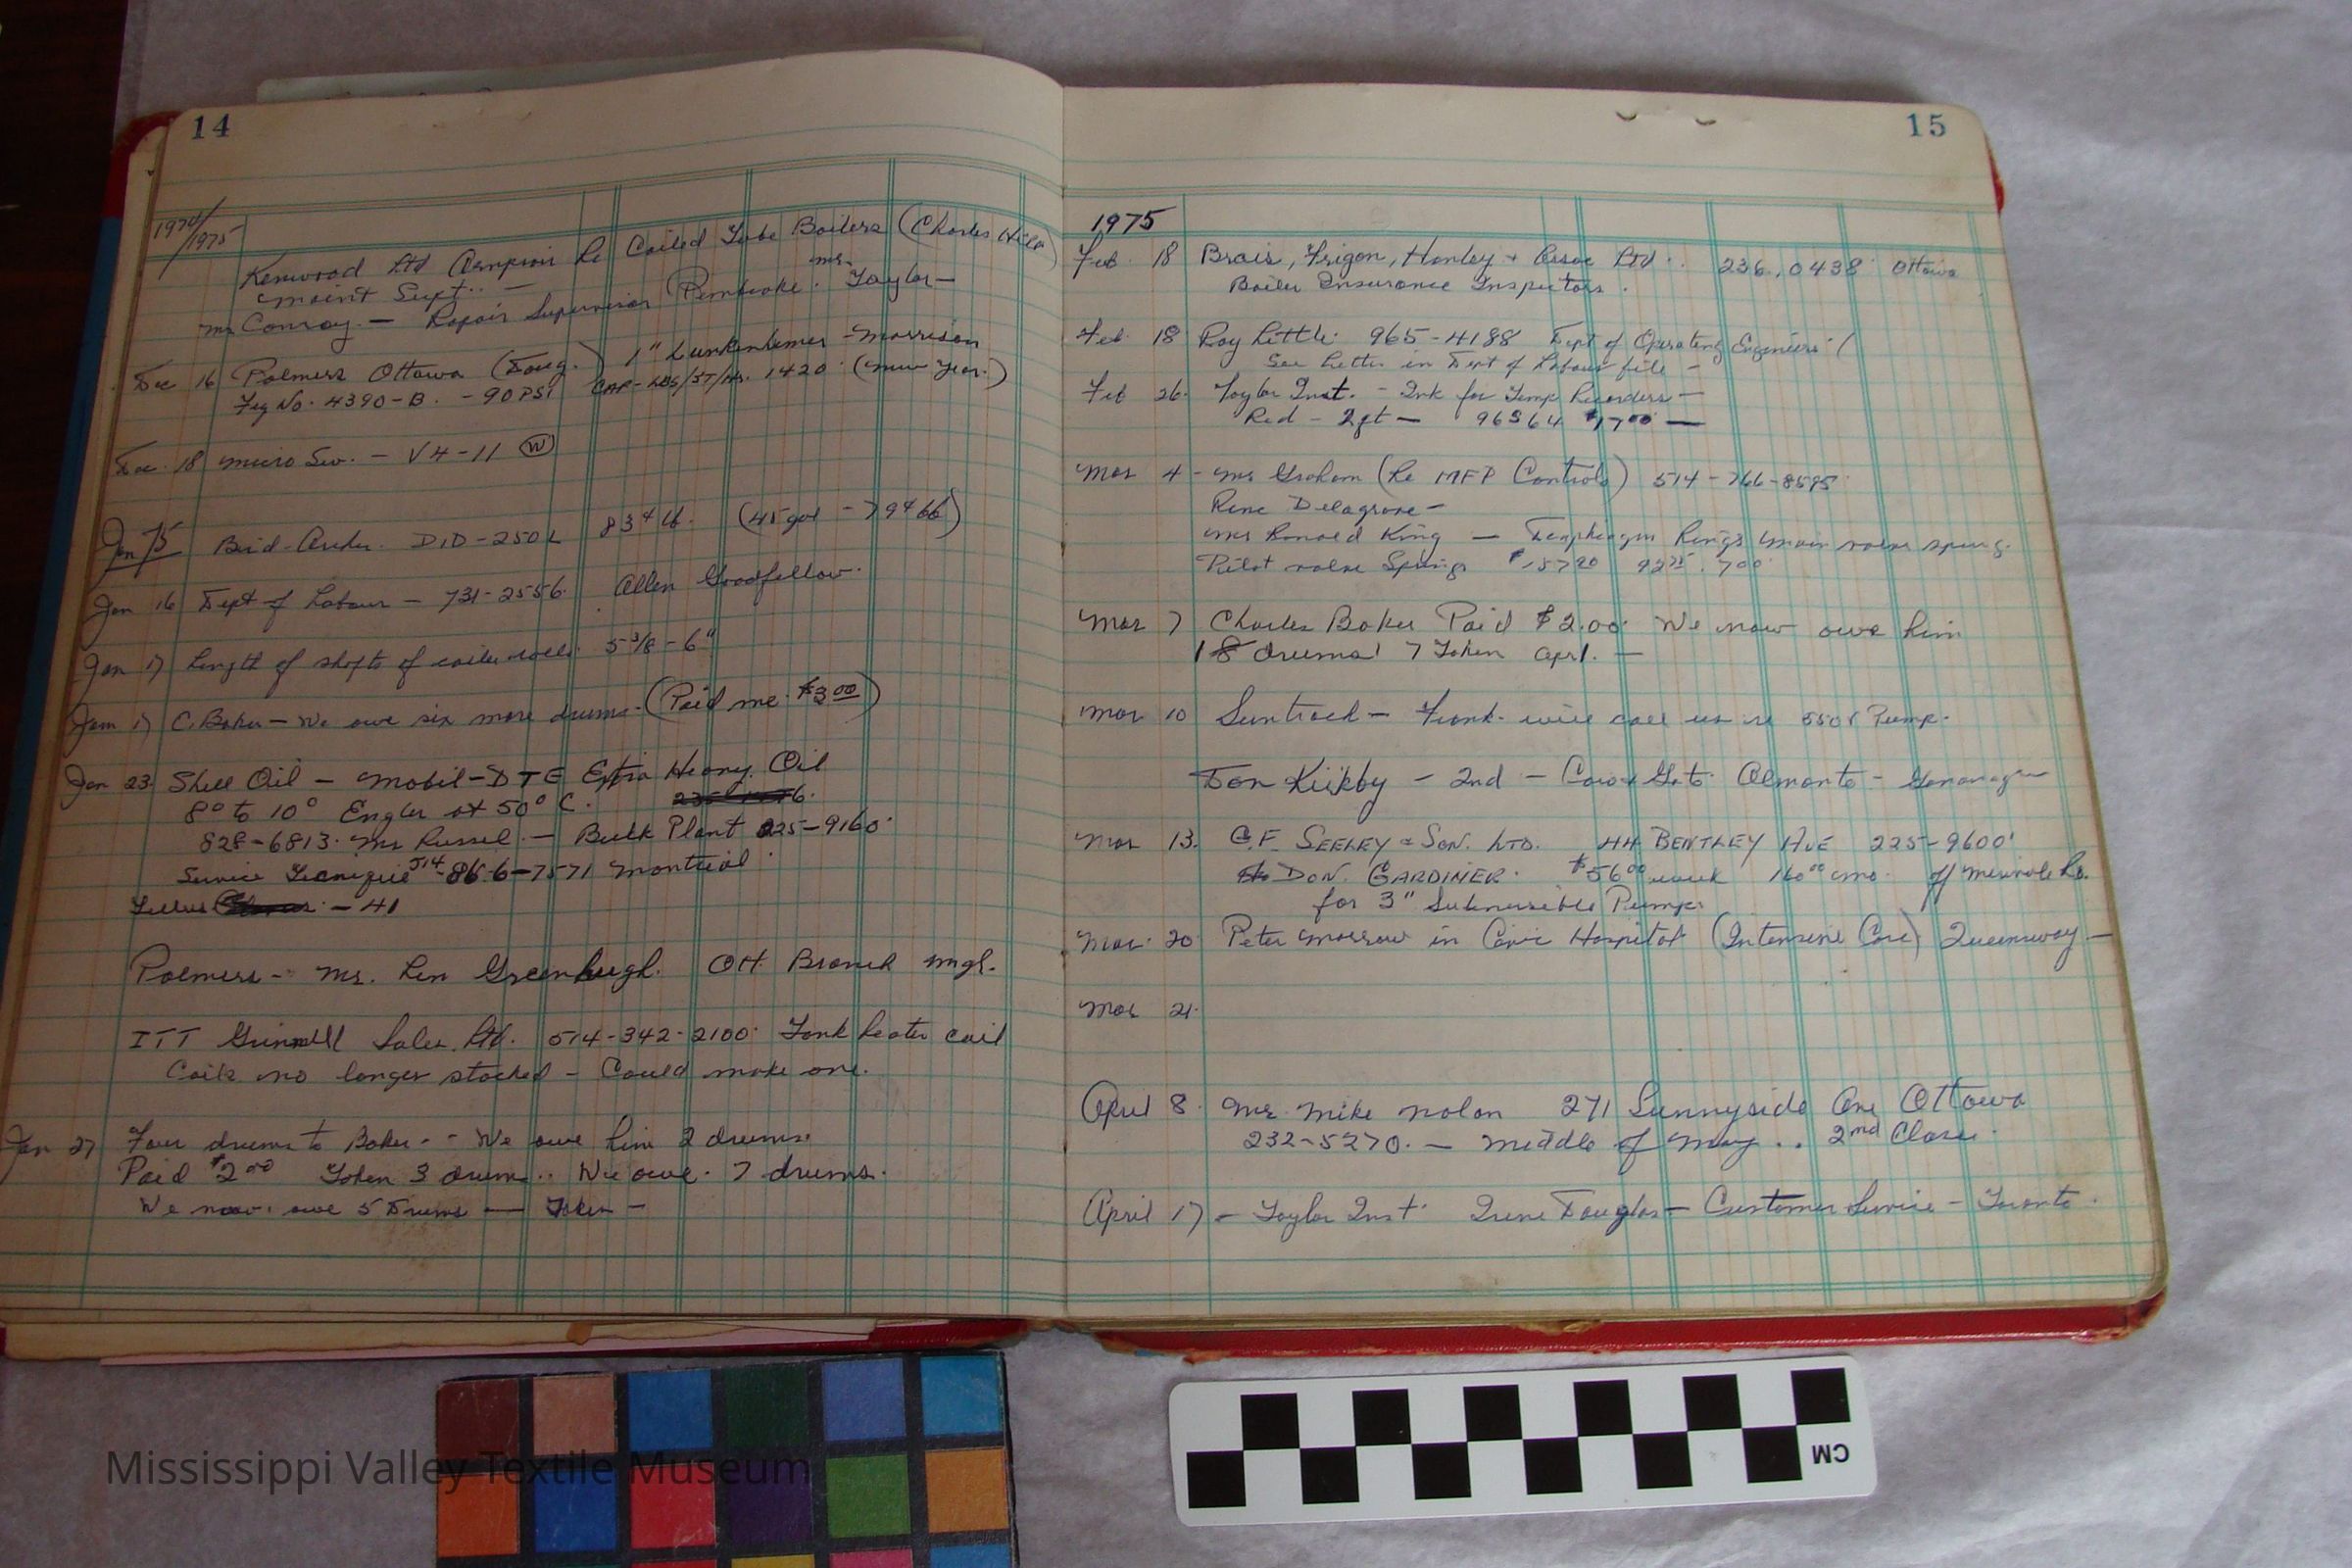 14
1974/1975
Kenwood Ltd Arnprior Re Coiled Tube Boilers (Charles Hill)
Maint Supt.. —
Mr Conroy. — Repair Supervisor Pembroke. Mr. Taylor —
Dec 16 Palmers Ottawa (Doug.) 1" Lunkenheimer - Morrison
Fig No. 4390-B. - 90 PSI CAP-LBS/ST/Hr. 1420. (New Year.)
Dec. 18 Micro Sw. - V4-11 (W)
Jan 75 Bird-Archer. DID-250L 83¢ lb. (45 gal - 79¢ lb)
Jan 16 Dept of Labour - 731-2556. Allen Goodfellow.
Jan 17 Length of shafts of coiler rolls. 5 3/8 - 6"
Jan 17 C. Baker - We owe six more drums - (Paid me $3.00)
Jan 23. Shell Oil - Mobil - DTE Extra Heavy Oil
8° to 10° Engler at 50° C.
828-6813. Mr Russel. — Bulk Plant 225-9160.
Service 514-866-7571 Montreal.
Tellus - 41
Palmers - Mr. Len Greenhugh. Ott. Branch Mgr.
ITT Grinnell Sales Ltd. 514-342-2100. Tank heater coil
Coils no longer stocked - Could make one.
Jan 27 Four drums to Baker - - We owe him 2 drums.
Paid $2.00 Taken 3 drums.. We owe. 7 drums.
We now. owe 5 Drums — Taken —
15
1975
Feb. 18 Brais, Frigon, Hanley + Assoc Ltd.. 236.0438 Ottawa
Boiler Insurance Inspectors.
Feb. 18 Roy Little. 965-4188 Dept of Operating Engineers. (
See Letter in Dept of Labour file -
Feb 26. Taylor Inst. - Ink for Temp Recorders -
Red - 2 96364 $17.00 —
Mar 4 - Mr Graham (Re MFP Controls) 514-766-8595
Rene Delagrave -
Mr Ronald King — Diaphragm Rings main valve spring.
Pilot valve Springs 7.00
Mar 7 Charles Baker Paid $2.00. We now owe him
18 drums! 7 Taken Apr 1. —
Mar 10 Suntract - Frank. will call us re 5508 Pump.
Don Kirkby - 2nd - Cow & Gate Almonte -
Mar 13. C.F. SEELEY & SON. LTD. 44 BENTLEY AVE 225-9600.
DON. GARDINER. $56.00 week 160.00 mo. off Merivale Rd.
for 3" Submersible Pump.
Mar. 20 Peter Morrow in Civic Hospital (Intensive Care) Queensway. —
Mar 21.
April 8. Mr. Mike Nolan 271 Sunnyside Ave Ottawa
232-5270. — Middle of May.. 2nd Class.
April 17 - Taylor Inst. Irene Douglas - Customer Service - Toronto.
CM
Mississippi Valley Textile Museum